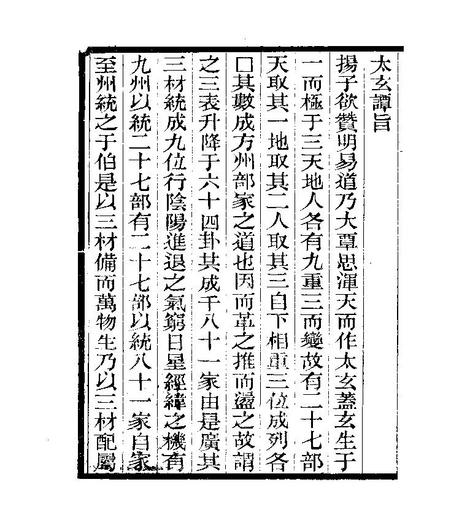 太玄譚旨
揚子欲贊明易道乃大覃思渾天而作太玄蓋玄生于
一而極于三天地人各有九重三而變故有二十七部
天取其一地取其二人取其三自下相重三位成列各
囗其數成方州部家之道也因而革之推而盪之故謂
之三表升降于六十四卦共成千八十一家由是廣其
三材統成九位行陰陽進退之氣窮日星經緯之機有
九州以統二十七部有二十七部以統八十一家自家
至州統之于伯是以三材備而萬物生乃以三材配屬